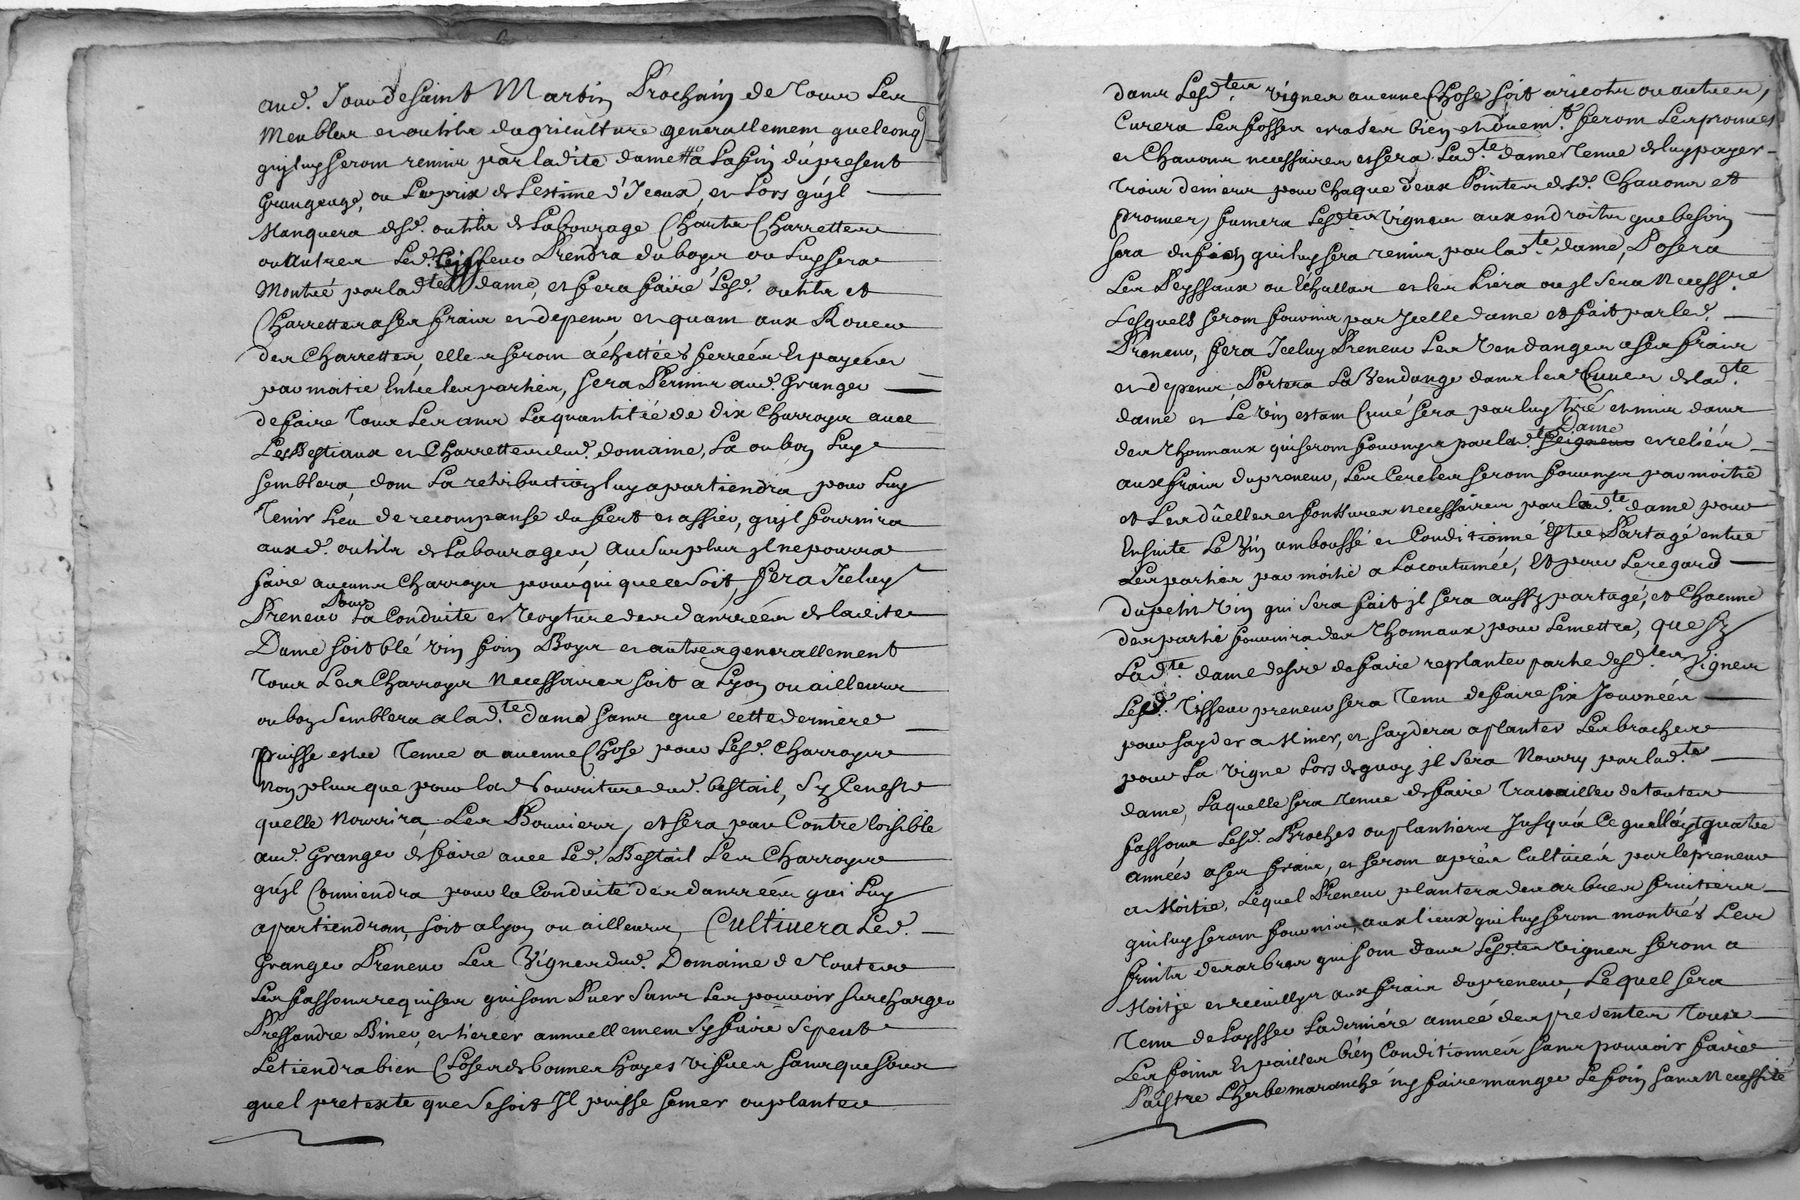 aud. Jour de saint Martin Prochain de tous Les
Meubles et outils dagriculture generallement quelconq
quj luy seront remis par ladite dame a La fin du present
Grangeage, ou Le prix de Lestime d'Iceux, et Lors qu'jl
Manquera desd. outils de Labourage Chars Charrettes
ou autres Led. Prendra du boys ou Luy sera
Montré par lad.te dame, et fera faire Lesd. outils et
Charrettes a ses frais et depens, et quant aux Roues
des Charrettes, elles seront achettées ferrées Et payées
par moitie Entre les parties, sera Permis aud. Granger
de faire tous Les ans La quantitée de dix Charroys avec
Les Bestiaux et Charrettes dud. domaine, La ou bon Luy
semblera, dont La retribution luy apartiendra pour Luy
Tenir Lieu de recompanse du fert et assier, qu'jl fournira
auxd. outils de Labourages, au surplus jl ne pourra
faire aucuns Charroys pour qui que ce soit, fera Iceluy
Preneur Pour La Conduite et voyture des danrrées de ladite
Dame soit blé vin foin Boys et autres generallement
tous Les Charroys Necessaires soit a Lyon ou ailleurs
ou bon Semblera a lad.te dame sans que cette derniere
Puisse estre Tenue a aucune Chose pour Lesd. Charroys
Non plus que pour la Nourriture dud. bestail, Sy Ce nest
quelle Nourrira Les Bouviers, et sera par Contre loisible
aud. Granger de faire avec Led. Bestail Les Charroys
qu'jl Conviendra pour la Conduite des danrrées qui Luy
apartiendront, soit a lyon ou ailleurs, Cultivera Led.
Granger Preneur Les Vignes dud. Domaine de Toutes
Les fassons requises quj sont Puer Sans Les pouvoir surcharger
Dressandre Biner, et tiercer annuellement Sy faire se peut
Les tiendra bien Closes de bonnes hayes vifves sans que sous
quel pretexte que se soit Jl puisse semer ou planter
dans Lesd.tes vignes aucune Chose soit aricots ou autres,
Curera Les fosses et rases bien et duem.t feront Les provies
et Chavons necessaires et sera Lad.te dame Tenue de luy payer
trois deniers pour Chaque deux Pointes desd. Chavons et
provies, fumera Lesd.tes Vignes aux endroits que besoin
sera du fien qui luy sera remis par lad.te dame, Posera
Les Peyssaux ou Echallas et les Liera ou jl sera Necess.re
Lesquels seront fournis par Icelle dame et fait par led.
Preneur, fera Iceluy Preneur Les Vendanges a ses frais
et depens Portera La Vendange dans les Cuves de lad.te
dame et Le vin estant Cuvé sera par luy tiré et mis dans
des Thonnaux qui seront fournys par lad.te Dame et reliés
aux frais du preneur, Les Cercles seront fournys par moitié
et Les düelles et fonssures necessaires par lad.te dame pour
Ensuite Le Vin amboussé et Conditionné Estre Partagé entre
Les parties par moitié a La coutumée, Et pour Le regard
du petit vin qui sera fait jl sera aussy partagé, et Chacune
des partie fournira des Thonnaux pour Le mettre, que sy
Lad.te dame desire de faire replanter partie desd.tes Vignes
Led. Tisseur preneur sera Tenu de faire six Journées
pour sayder a Miner, et saydera a planter Les broches
pour La Vigne Lors de quoy jl sera Nourry par lad.te
dame, Laquelle sera Tenue de faire Travailler de toutes
fassons Lesd. Broches ou plantiers Jusqu'a Ce quelles ayt quatre
années a ses frais, et seront aprés Cultivés par le preneur
a Moitie, Lequel Preneur plantera des arbres fruitiers
quj luy seront fournis, aux lieux qui luy seront montrés Les
fruits des arbres quj sont dans Lesd.tes Vignes seront a
Moitie et recuillys aux frais du preneur, Lequel sera
Tenu de Laysser La derniére année des presentes Tous
Les foins Et pailles bien Conditionnés sans pouvoir faire
Paistre L'herbe maranché ny faire manger Le foin sans Necessité